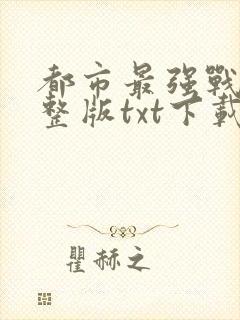 都市最强戰
整版txt下載
瞿赫之